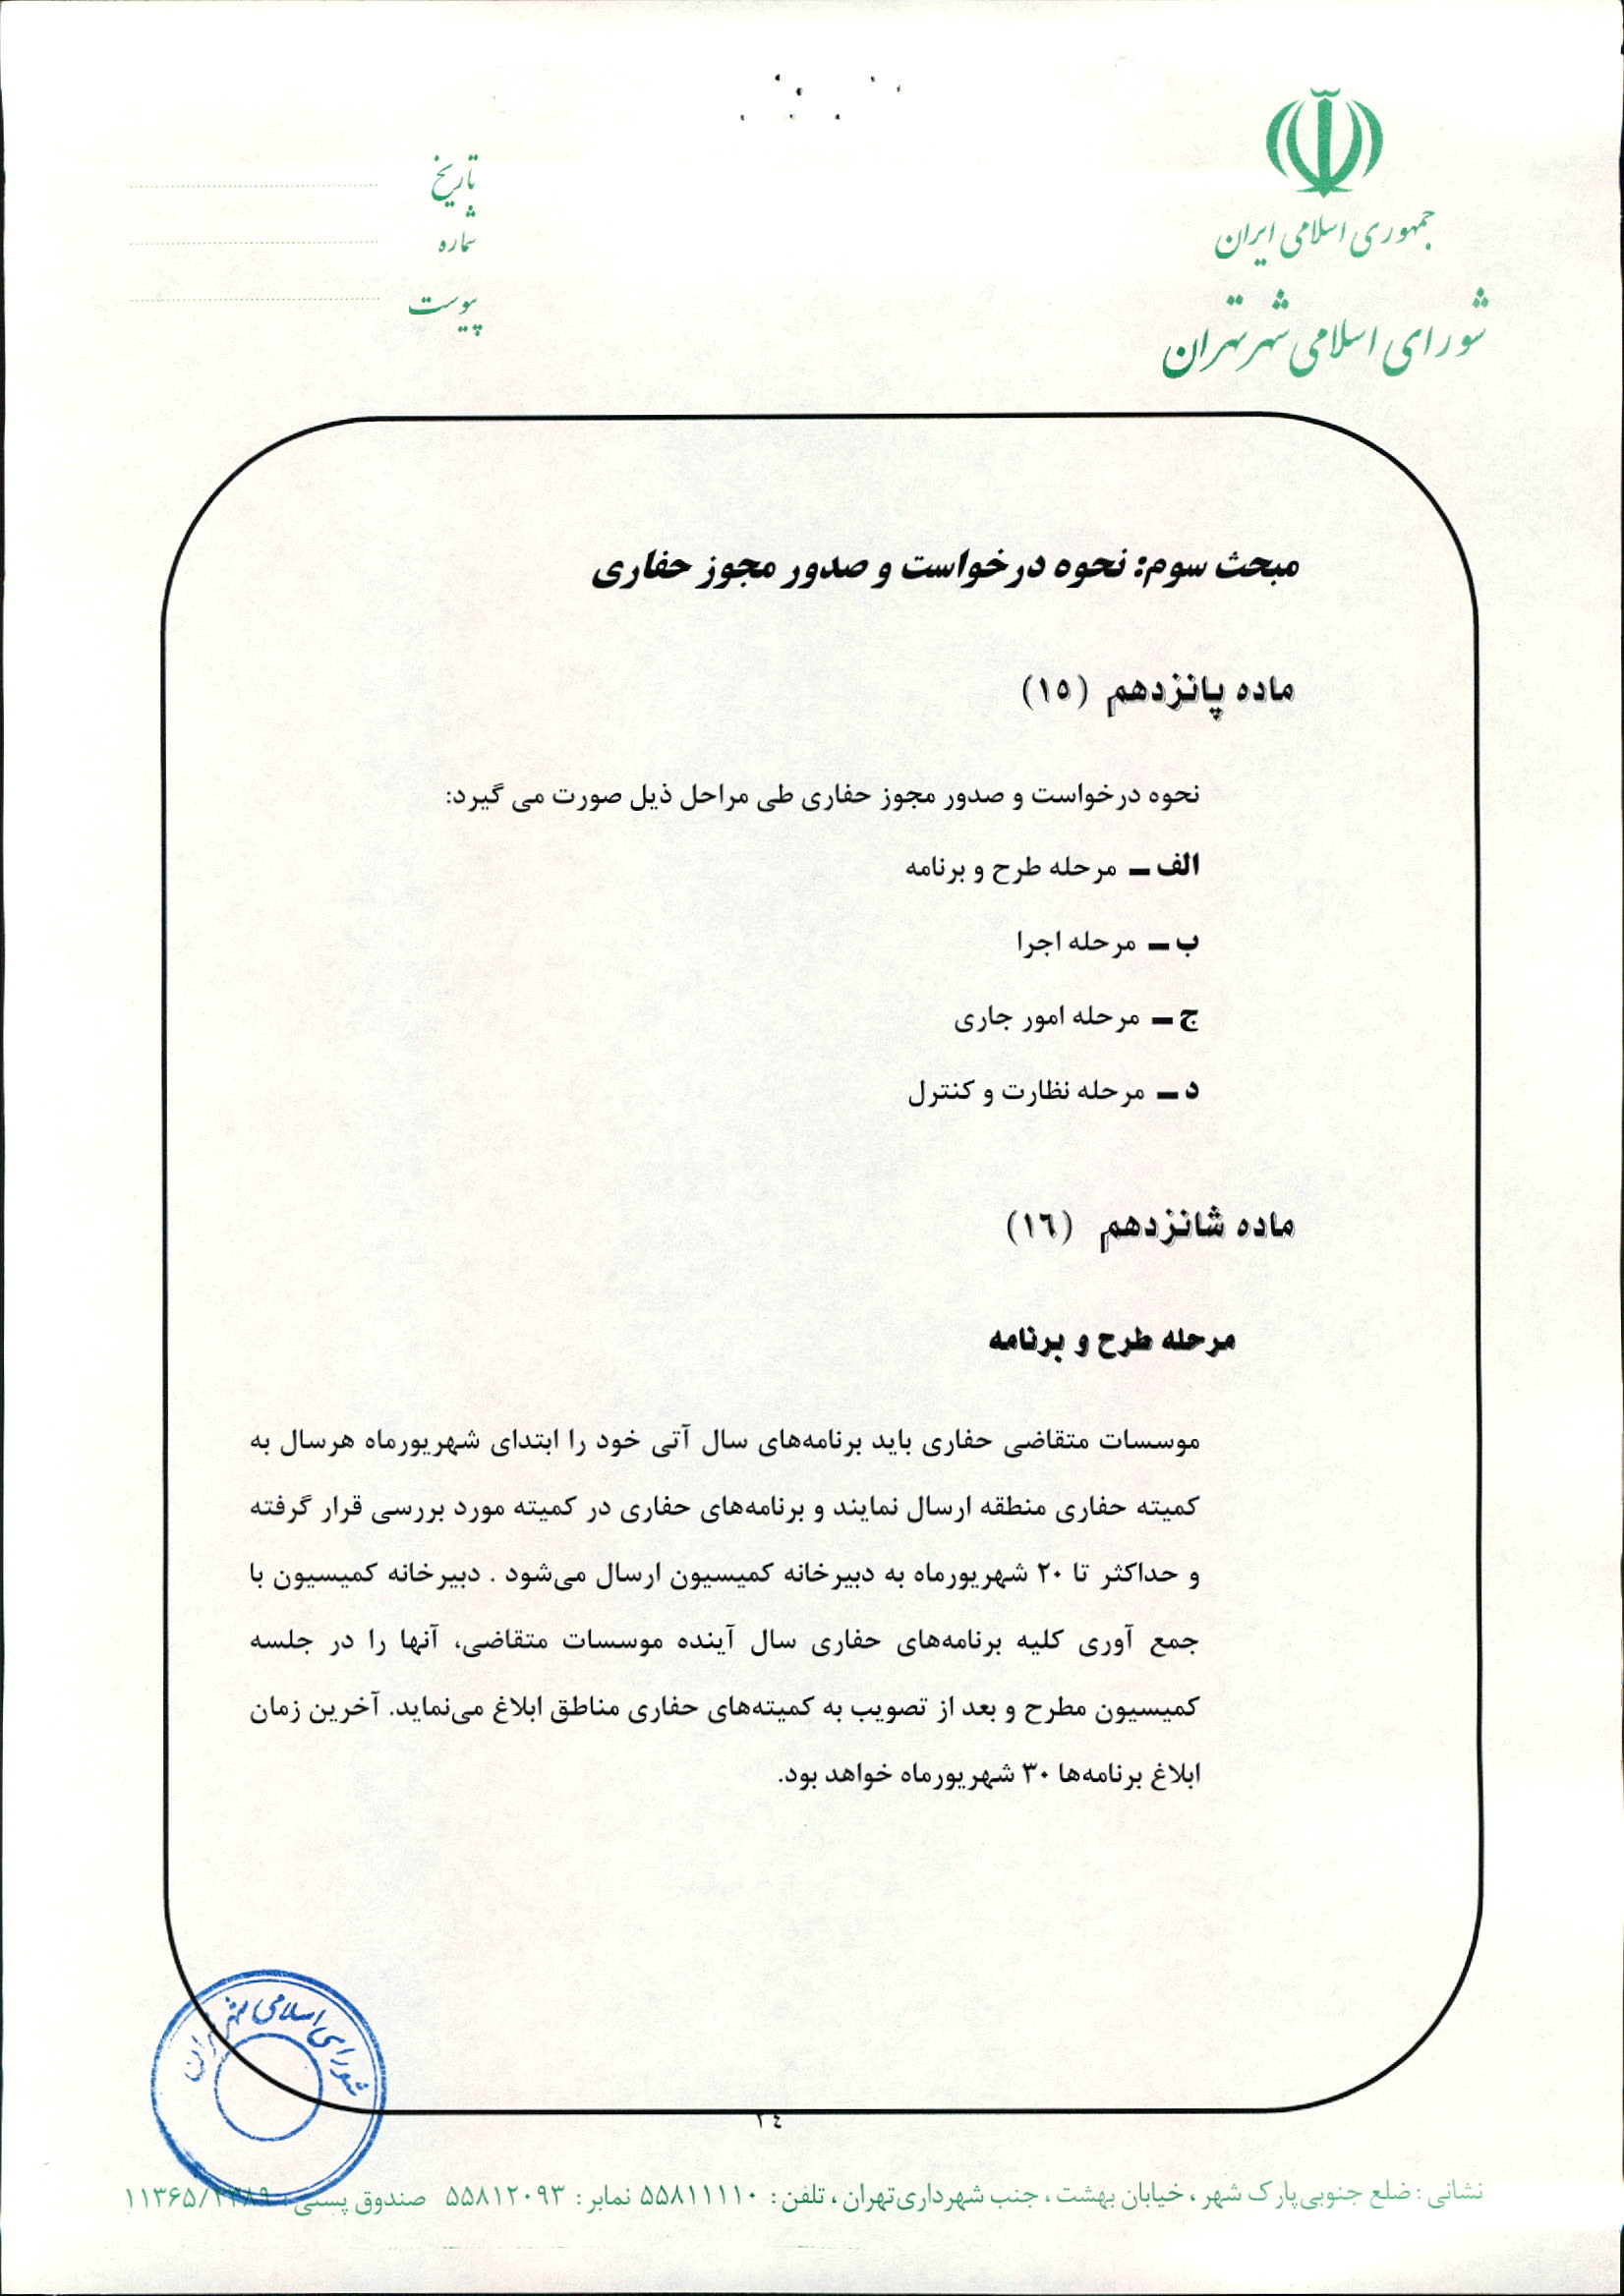 جمهوری اسلامی ایران
شورای اسلامی شهر تهران
تاریخ
شماره
پیوست
مبحث سوم: نحوه درخواست و صدور مجوز حفاری
ماده پانزدهم (١٥)
نحوه درخواست و صدور مجوز حفاری طی مراحل ذیل صورت می گیرد:
الف ـ مرحله طرح و برنامه
ب ـ مرحله اجرا
ج ـ مرحله امور جاری
د ـ مرحله نظارت و کنترل
ماده شانزدهم (١٦)
مرحله طرح و برنامه
موسسات متقاضی حفاری باید برنامه‌های سال آتی خود را ابتدای شهریورماه هرسال به
کمیته حفاری منطقه ارسال نمایند و برنامه‌های حفاری در کمیته مورد بررسی قرار گرفته
و حداکثر تا ۲۰ شهریورماه به دبیرخانه کمیسیون ارسال می‌شود . دبیرخانه کمیسیون با
جمع آوری کلیه برنامه‌های حفاری سال آینده موسسات متقاضی، آنها را در جلسه
کمیسیون مطرح و بعد از تصویب به کمیته‌های حفاری مناطق ابلاغ می‌نماید. آخرین زمان
ابلاغ برنامه‌ها ۳۰ شهریورماه خواهد بود.
شورای اسلامی شهر تهران
نشانی : ضلع جنوبی پارک شهر ، خیابان بهشت ، جنب شهرداری تهران ، تلفن : ۵۵۸۱۱۱۱۰ نمابر : ۵۵۸۱۲۰۹۳ صندوق پستی :